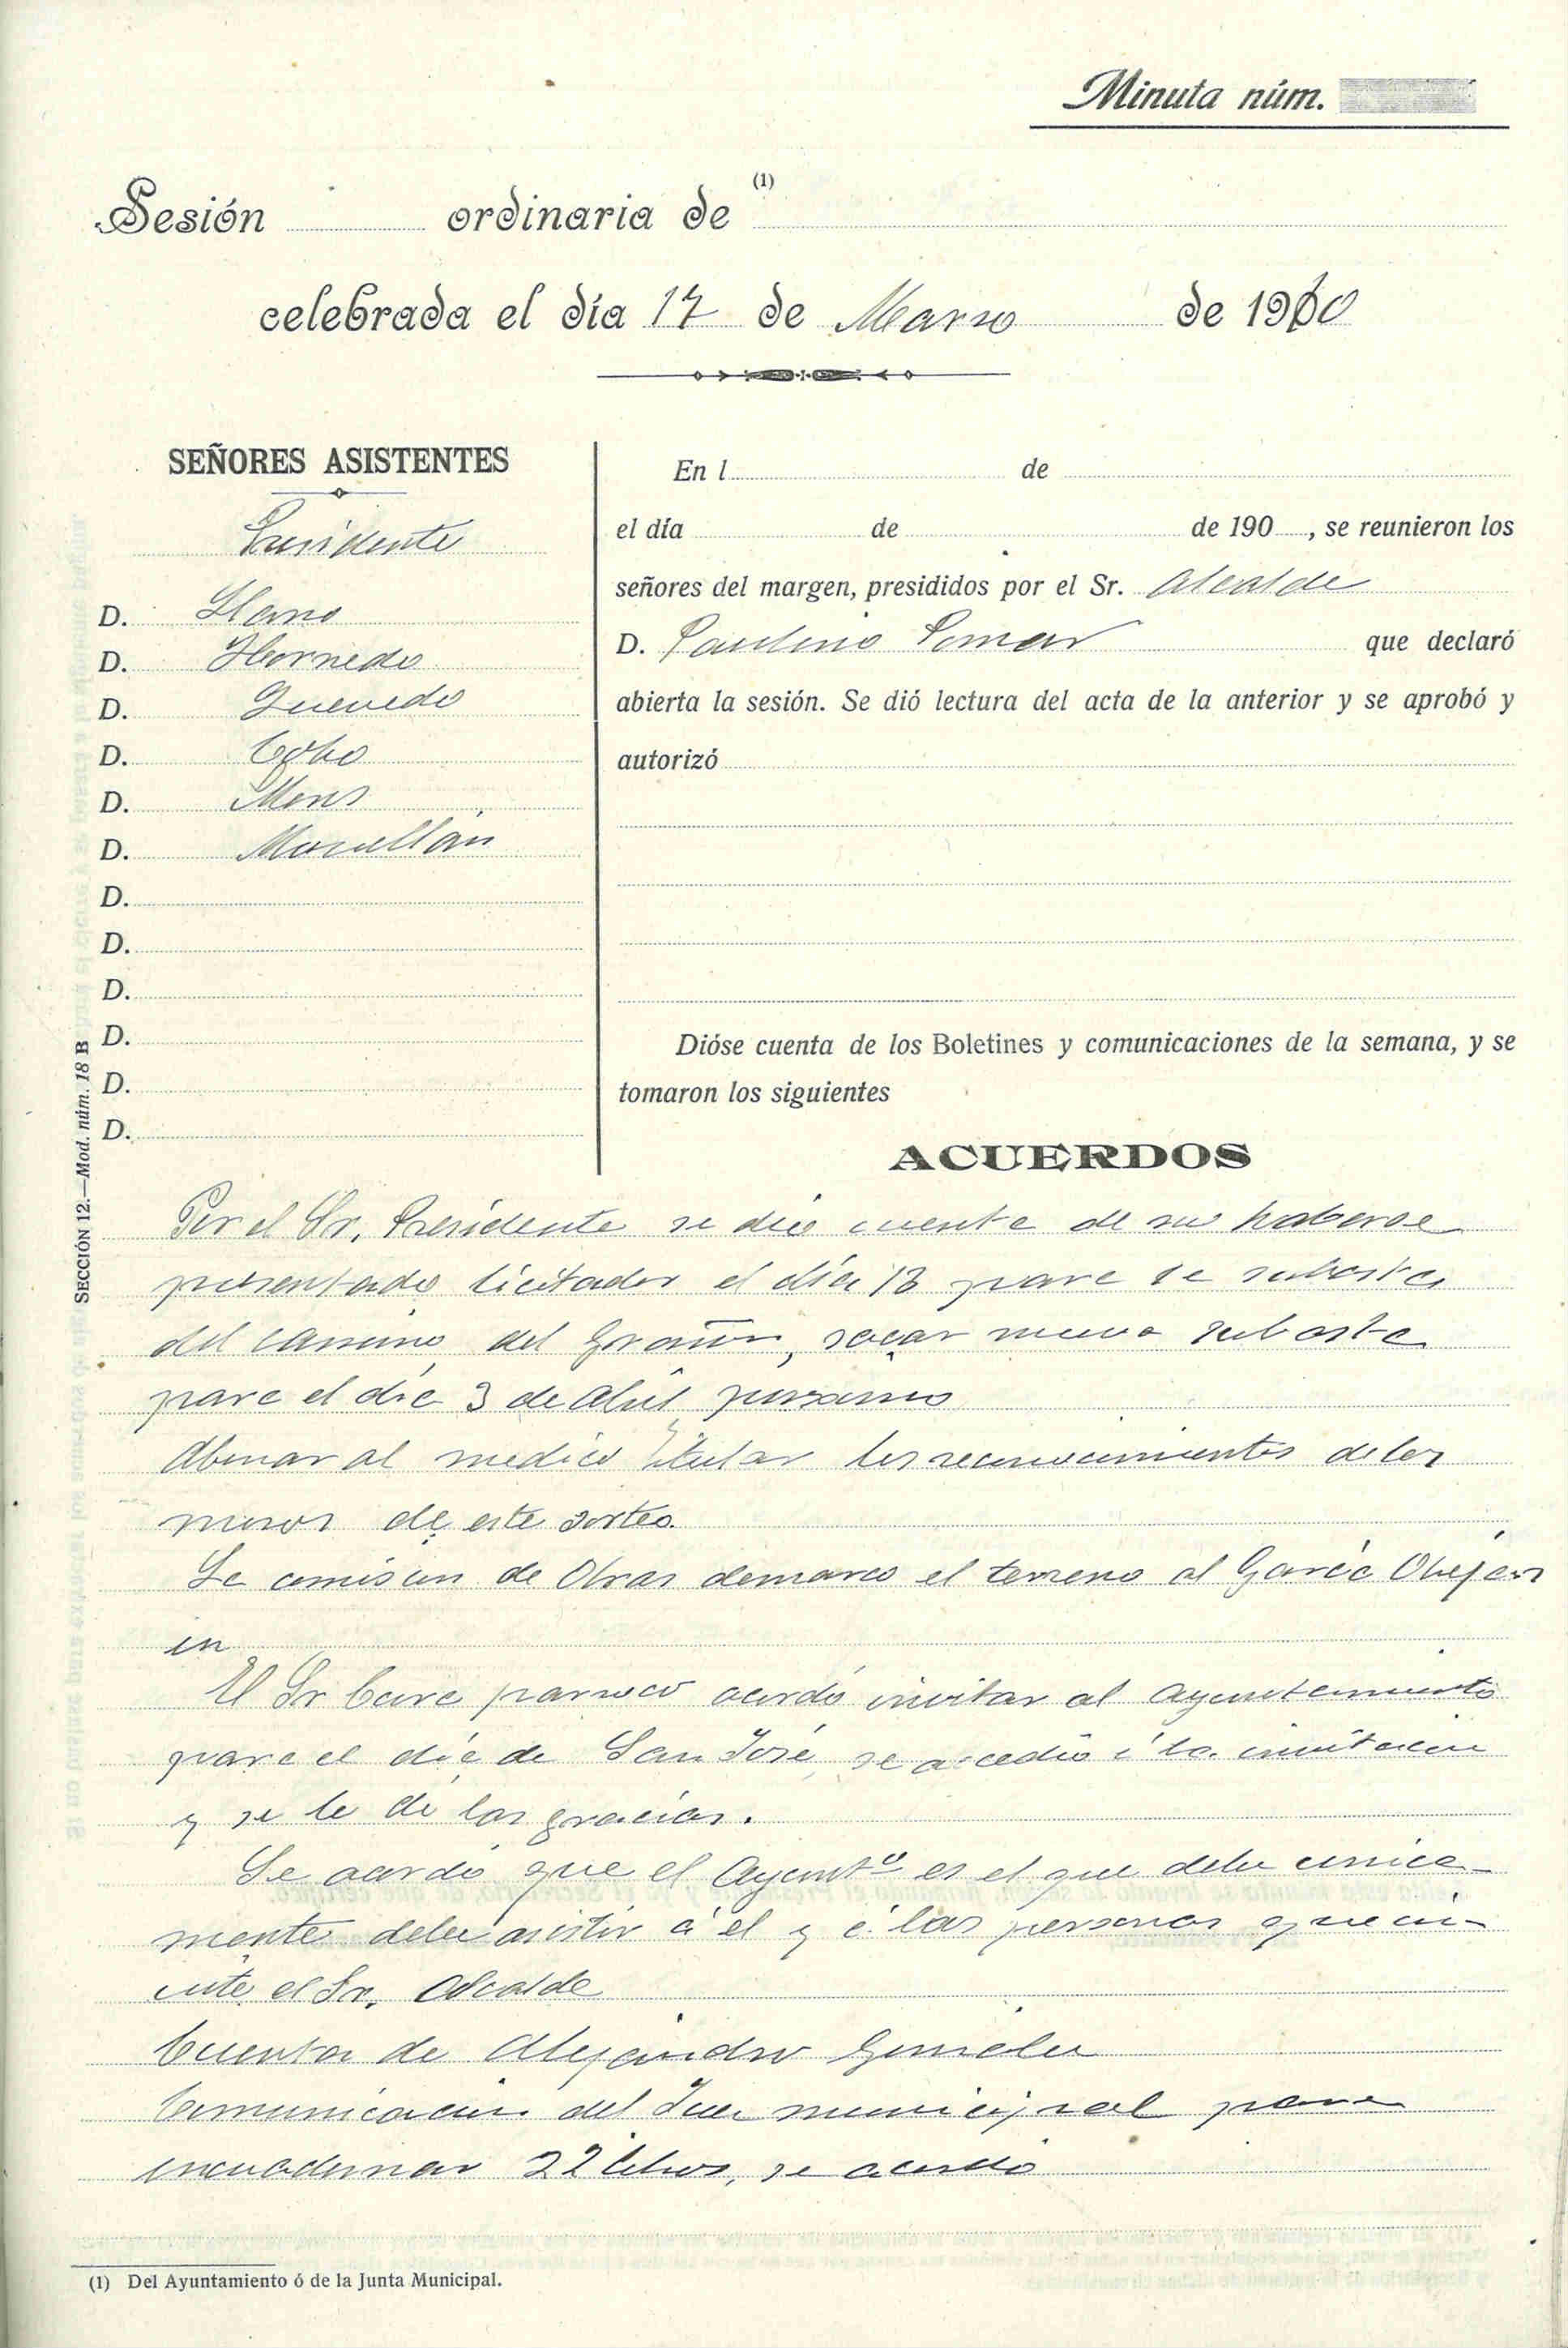 Minuta núm.
Sesión ordinaria de (1)
celebrada el día 17 de Marzo de 1910
SEÑORES ASISTENTES
Presidente
D. Llano
D. Hornedo
D. Quevedo
D. Cobo
D. Mons
D. Morellán
D.
D.
D.
D.
D.
D.
En l de
el día de de 190 , se reunieron los
señores del margen, presididos por el Sr. Alcalde
D. Paulino que declaró
abierta la sesión. Se dió lectura del acta de la anterior y se aprobó y
autorizó
Dióse cuenta de los Boletines y comunicaciones de la semana, y se
tomaron los siguientes
ACUERDOS
Por el Sr. Presidente se dió cuenta de no haberse
presentado licitador el día 13 para la subasta
del camino del, sacar nueva subasta
para el día 3 de Abril proximo
Abonar al medico titular los reconocimientos de los
mozos de este sorteo.
La comision de Obras demarco el terreno al Garcia
en
El Sr Cura parroco acordó invitar al Ayuntamiento
para el día de San José, se accedio á la invitacion
y se le dé las gracias.
Se acordó que el Ayuntº es el que debe unica-
mente debe asistir á el y á las personas que in-
vite el Sr. Alcalde
Cuenta de Alejandro
Comunicacion del Juez municipal para
encuadernar 22 libros, se acordó
(1) Del Ayuntamiento ó de la Junta Municipal.
SECCIÓN 12.—Mod. núm. 18 B